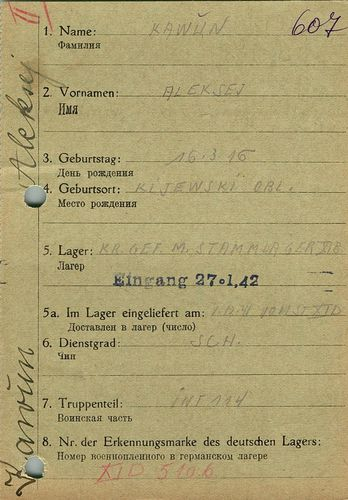 II
607
1. Name: KAWŬN
Фамилия
2. Vornamen: ALEKSEJ
Имя
3. Geburtstag: 16.3 16
День рождения
4. Geburtsort: KIJEWSKI OBL.
Место рождения
5. Lager: KR. GEF. M. STAMMLAGER
Лагер
Eingang 27.1.42
5a. Im Lager eingeliefert am:
Доставлен в лагер (число)
6. Dienstgrad: SCH.
Чин
7. Truppenteil: INF 114
Воинская часть
8. Nr. der Erkennungsmarke des deutschen Lagers:
Номер военнопленного в германском лагере
XID 5106
Kawŭn Aleksej